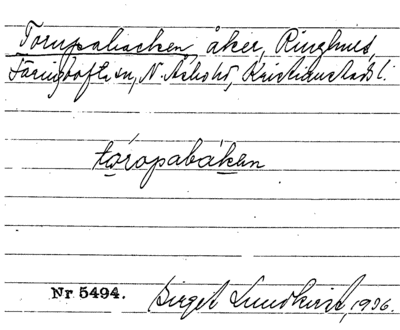 Torupabacken, åker, Ringhult,
Färingtofta sn, N. Åsbo hd, Kristianstads l.
tóropabàken
Nr 5494. Birget Lundkvist, 1936.